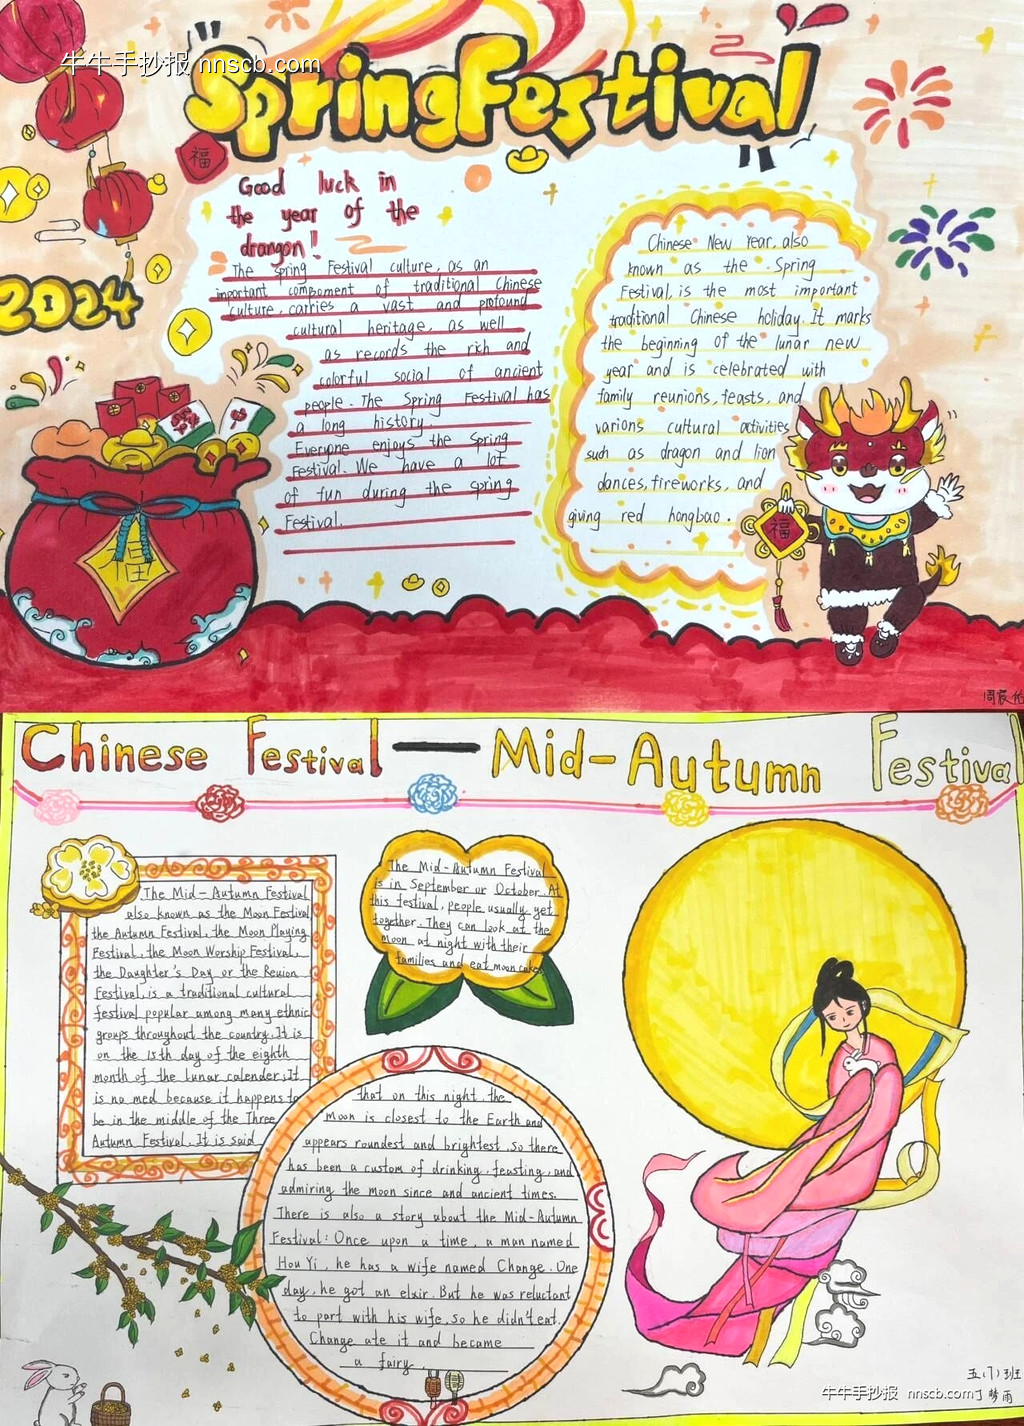 牛牛手抄报 nnscb.com
"Spring Festival"
福
Good luck in
the year of the
drangon!
2024
The Spring Festival culture, as an
important compoment of traditional Chinese
culture, carries a vast and profound
cultural heritage, as well
as records the rich and
colorful social of ancient
people. The Spring Festival has
a long history.
Everyone enjoys the Spring
Festival. We have a lot
of fun during the spring
Festival.
Chinese New Year, also
known as the Spring
Festival, is the most important
traditional Chinese holiday. It marks
the beginning of the lunar new
year and is celebrated with
family reunions, feasts, and
varions cultural activities
such as dragon and lion
dances, fireworks, and
giving red hongbao.
福
福
Chinese Festival — Mid-Autumn Festival
The Mid-Autumn Festival
also known as the Moon Festival
the Autumn Festival, the Moon Playing
Festival, the Moon Worship Festival,
the Daughter's Day or the Reuion
Festival, is a traditional cultural
festival popular among many ethnic
groups throughout the country. It is
on the 15th day of the eighth
month of the Lunar calender. It
is na med because it happens to
be in the middle of the Three
Autumn Festival. It is said
The Mid-Autumn Festival
is in September or October. At
this festival, people usually get
together. They can look at the
moon at night with their
families and eat moon cakes
that on this night, the
moon is closest to the Earth and
appears roundest and brightest, so there
has been a custom of drinking, feasting, and
admiring the moon since and ancient times.
There is also a story about the Mid-Autumn
Festival: Once upon a time, a man named
Hou Yi, he has a wife named Change. One
day, he got an elxir. But he was reluctant
to part with his wife, so he didn't eat.
Change ate it and became
a fairy.
五(7)班
牛牛手抄报 nnscb.com